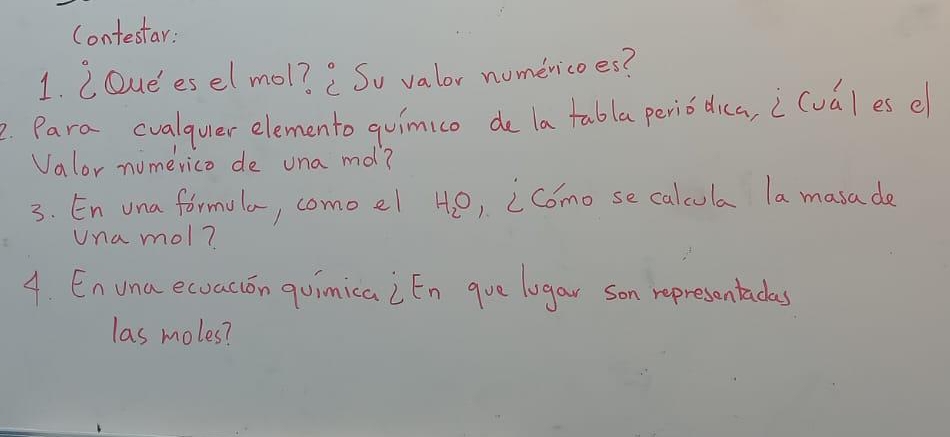 Contestar:
1. ¿Qué es el mol? ¿Su valor numérico es?
2. Para cualquier elemento químico de la tabla periódica, ¿Cuál es el
Valor numérico de una mol?
3. En una fórmula, como el H₂O, ¿Cómo se calcula la masa de
una mol?
4. En una ecuación química ¿En que lugar son representadas
las moles?